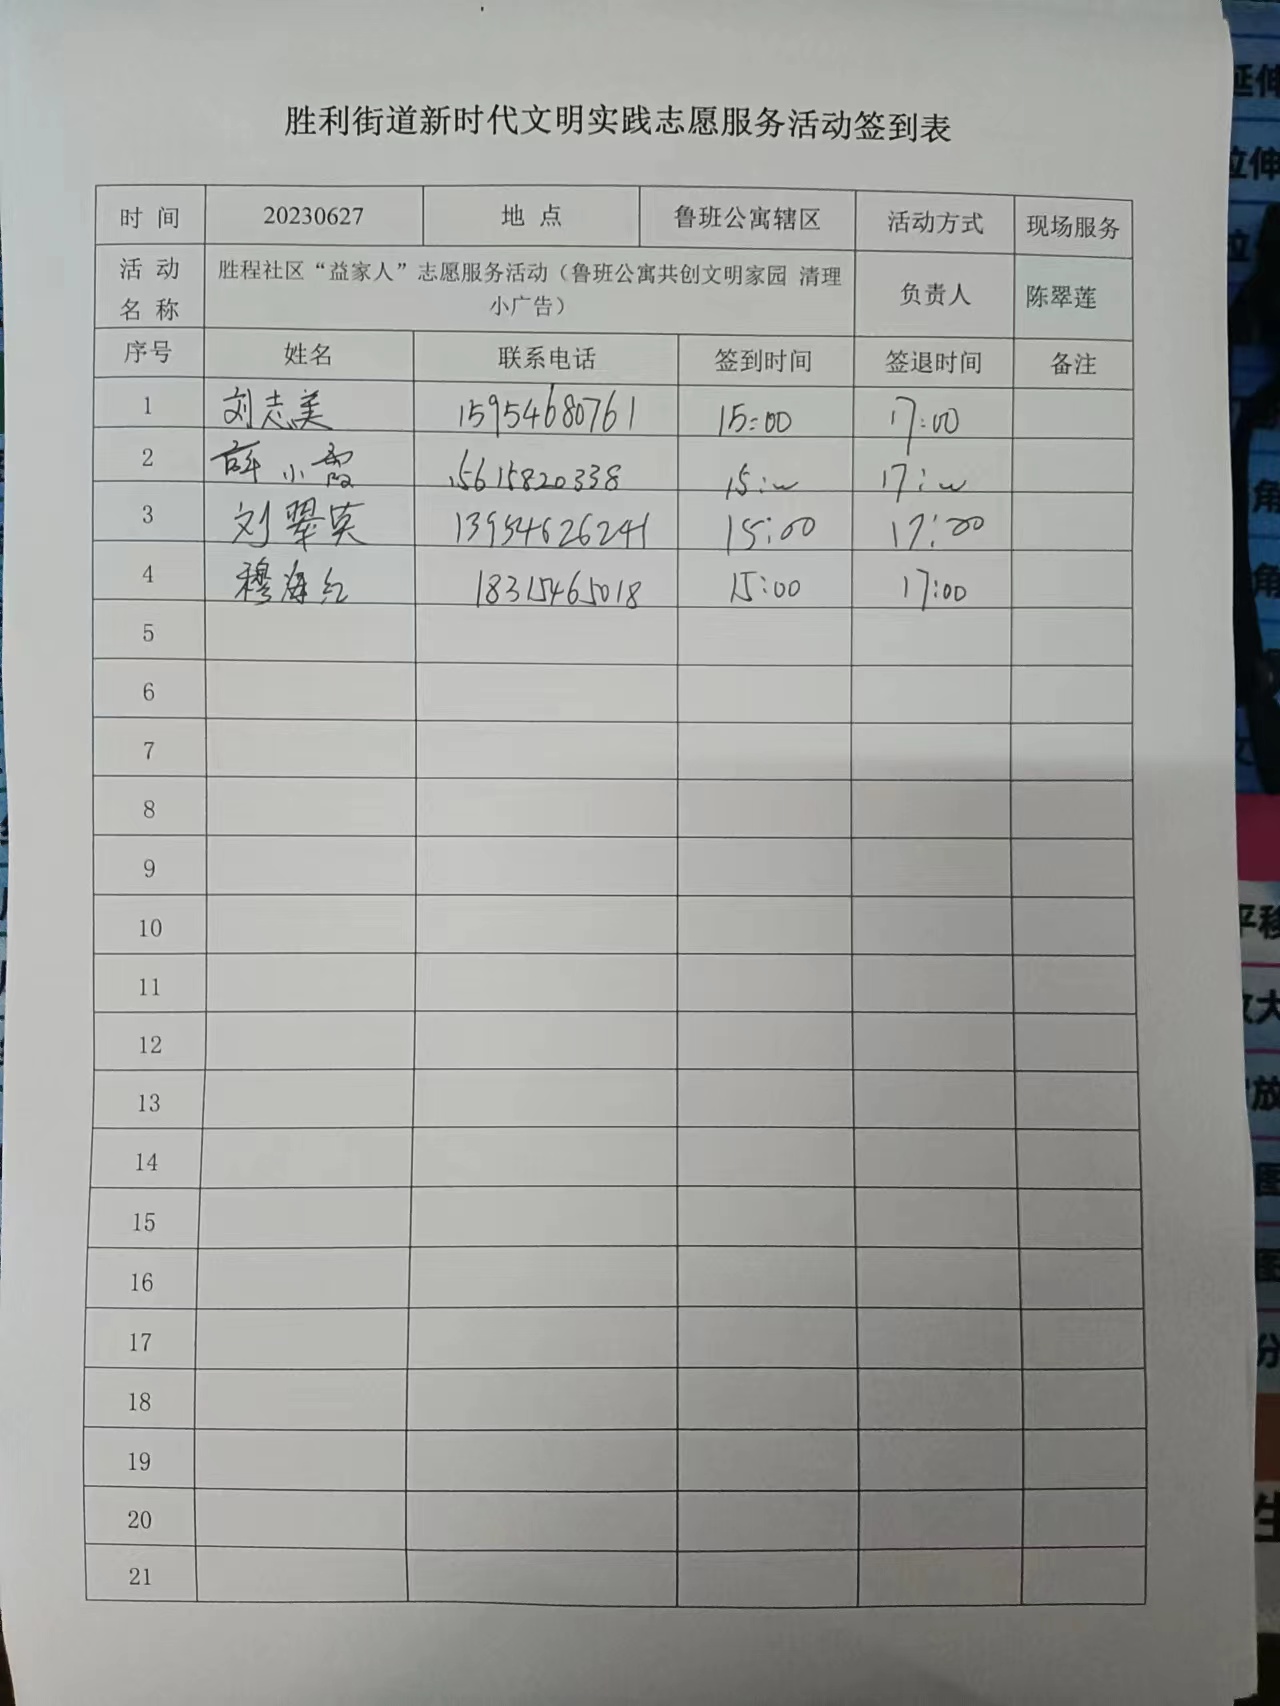 胜利街道新时代文明实践志愿服务活动签到表
时 间 20230627 地 点 鲁班公寓辖区 活动方式 现场服务
活 动 名 称 胜程社区“益家人”志愿服务活动（鲁班公寓共创文明家园 清理
小广告） 负责人 陈翠莲
序号 姓名 联系电话 签到时间 签退时间 备注
1 刘志美 15954680761 15:00 17:00
2 薛小霞 15615820338 15:00 17:00
3 刘翠英 13954626241 15:00 17:00
4 穆海红 18315465018 15:00 17:00
5
6
7
8
9
10
11
12
13
14
15
16
17
18
19
20
21
延伸
拉伸
角
角
文
平移
放大
缩放
图
图
分
生